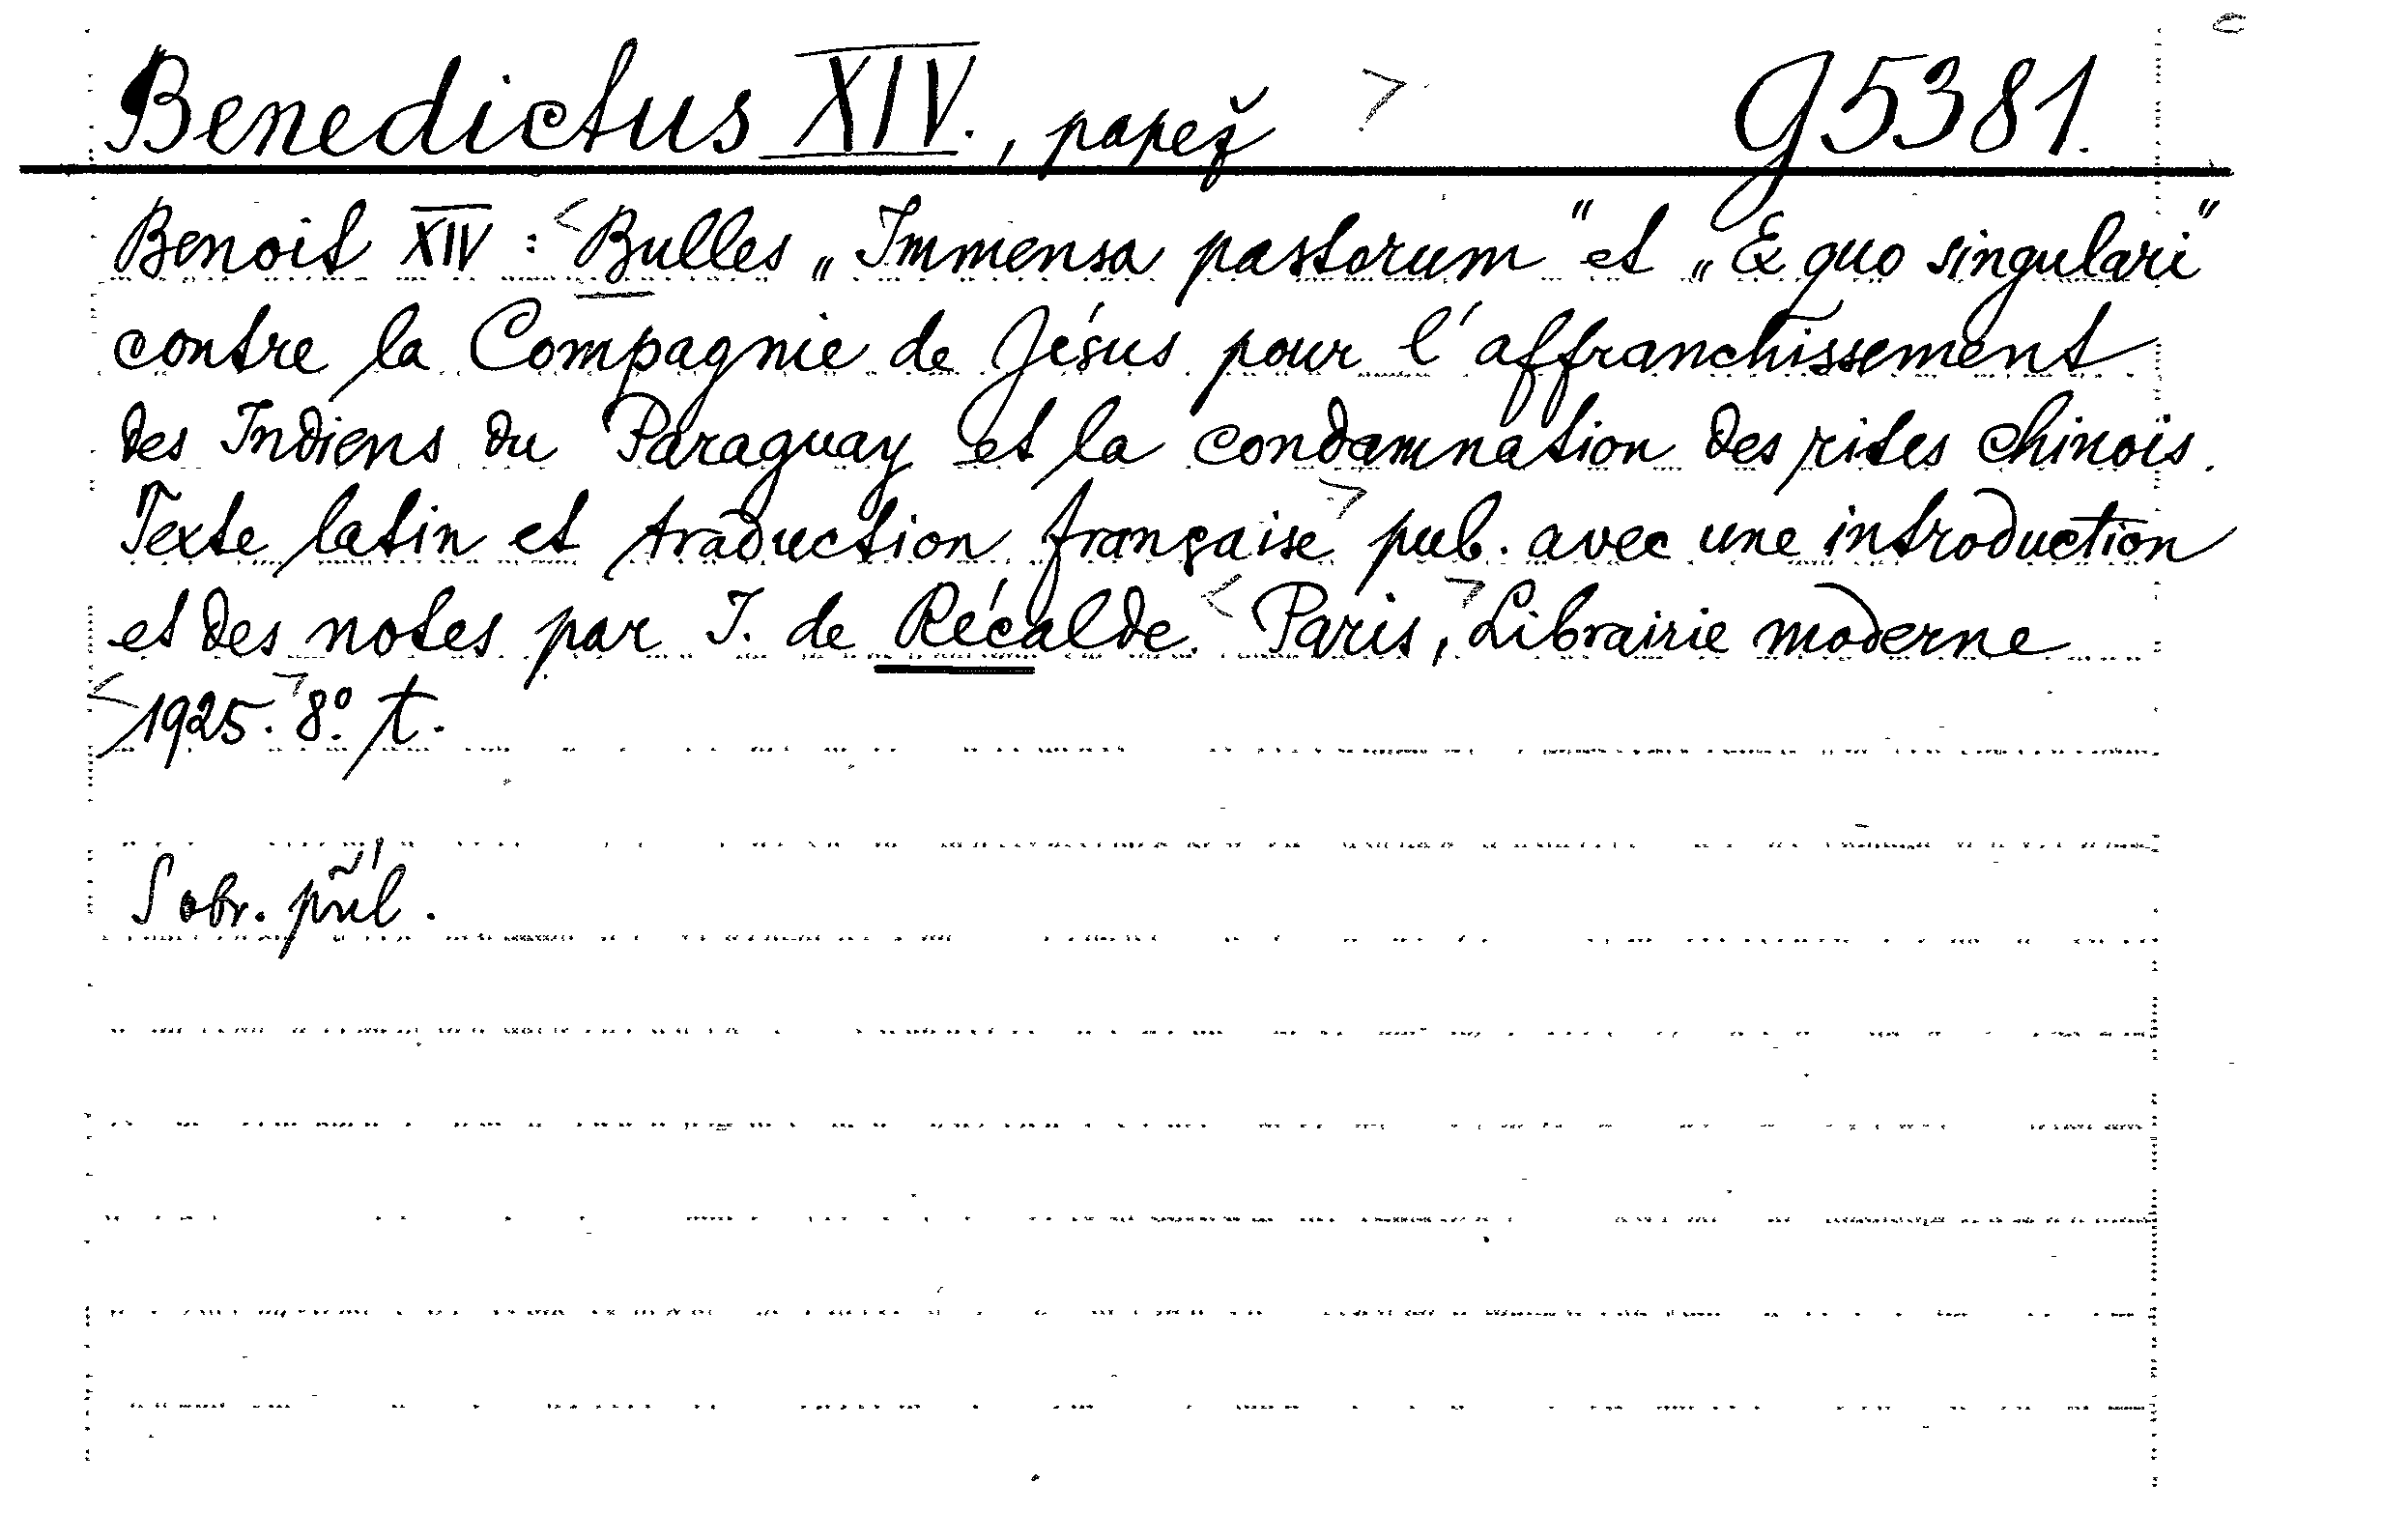 Benedictus XIV., papež g5381.
Benoit XIV : Bulles „Immensa pastorum" et „Ex quo singulari"
contre la Compagnie de Jésus pour l'affranchissement
des Indiens du Paraguay et la condamnation des rites chinois.
Texte latin et traduction française pub. avec une introduction
et des notes par I. de Récalde. Paris, Librairie moderne
1925. 8°. t.
S obr. příl.